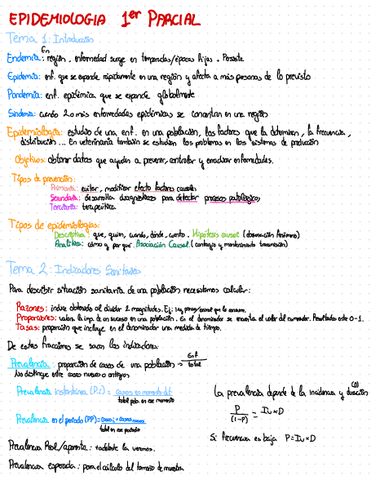 EPIDEMIOLOGIA 1er PARCIAL
Tema 1: Introducción
Endemia: En región, enfermedad surge en temporadas/épocas fijas.
Epidemia: enf. que se expande rápidamente en una región y afecta a más personas de lo previsto
Pandemia: enf. epidémica que se expande globalmente
Sindemia: cuando 2 o más enfermedades epidémicas se concentran en una región
Epidemiología: estudio de una enf. en una población, los factores que la determinan, la frecuencia,
distribución... En veterinaria también se estudian los problemas en los sistemas de producción
Objetivo: obtener datos que ayuden a prevenir, controlar y erradicar enfermedades.
Tipos de prevención:
Primaria: evitar, modificar efecto factores causales
Secundaria: desarrollo diagnósticos para detectar procesos patológicos
Terciaria: terapéutica.
Tipos de epidemiologías:
Descriptiva: que, quien, cuando, dónde, cuanto. Hipótesis causal (observación fenómeno)
Analítica: cómo y por qué. Asociación Causal (contagio y mantenimiento transmisión)
Tema 2: Indicadores Sanitarios
Para describir situación sanitaria de una población necesitamos calcular:
Razones: índice obtenido al dividir 2 magnitudes. Ej:
Proporciones: valora la imp. de un suceso en una población. En el denominador se encuentra el valor del numerador. Resultados entre 0-1.
Tasas: proporción que incluye en el denominador una medida de tiempo.
De estas fracciones se sacan los indicadores:
Prevalencia: proporción de casos de una población → Enf total
No distingue entre casos nuevos o antiguos
Prevalencia instantánea (Pi) = casos en momento det. total pobl. en ese momento
La prevalencia depende de la incidencia y duración (D)
P/(1-P) = I x D
Prevalencia en el período (PP) = total en ese período
Si frecuencia es baja P = I x D
Prevalencia Real/aparente: +adelante la vemos.
Prevalencia Esperada: para el cálculo del tamaño de muestra.